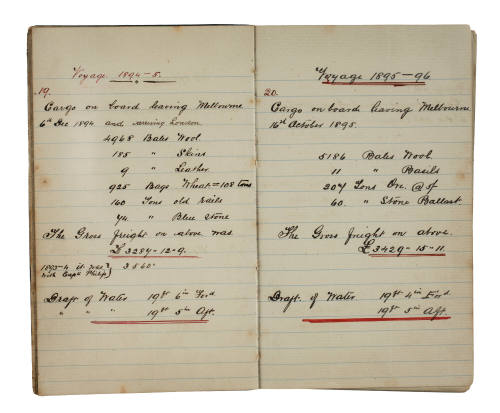 Voyage 1894-5.
19.
Cargo on board leaving Melbourne
6th Dec 1894 and arriving London
4968 Bales Wool
185 " Skins
9 " Leather
925 Bags Wheat = 108 tons
160 Tons old rails
74 " Blue Stone
The Gross freight on above was
£3287-12-9.
1893-4 it was } 3560
with Captn Philip
Draft of Water 19ft 6in For'd
" " " 19ft 5in Aft.
Voyage 1895-96
20.
Cargo on board leaving Melbourne
16th October 1895.
5186 Bales Wool
11 " Basils
207 Tons Ore. @ 5/
60. " Stone Ballast
The Gross freight on above.
£3429-15-11.
Draft. of Water 19ft 4in For'd
19ft 5in Aft.